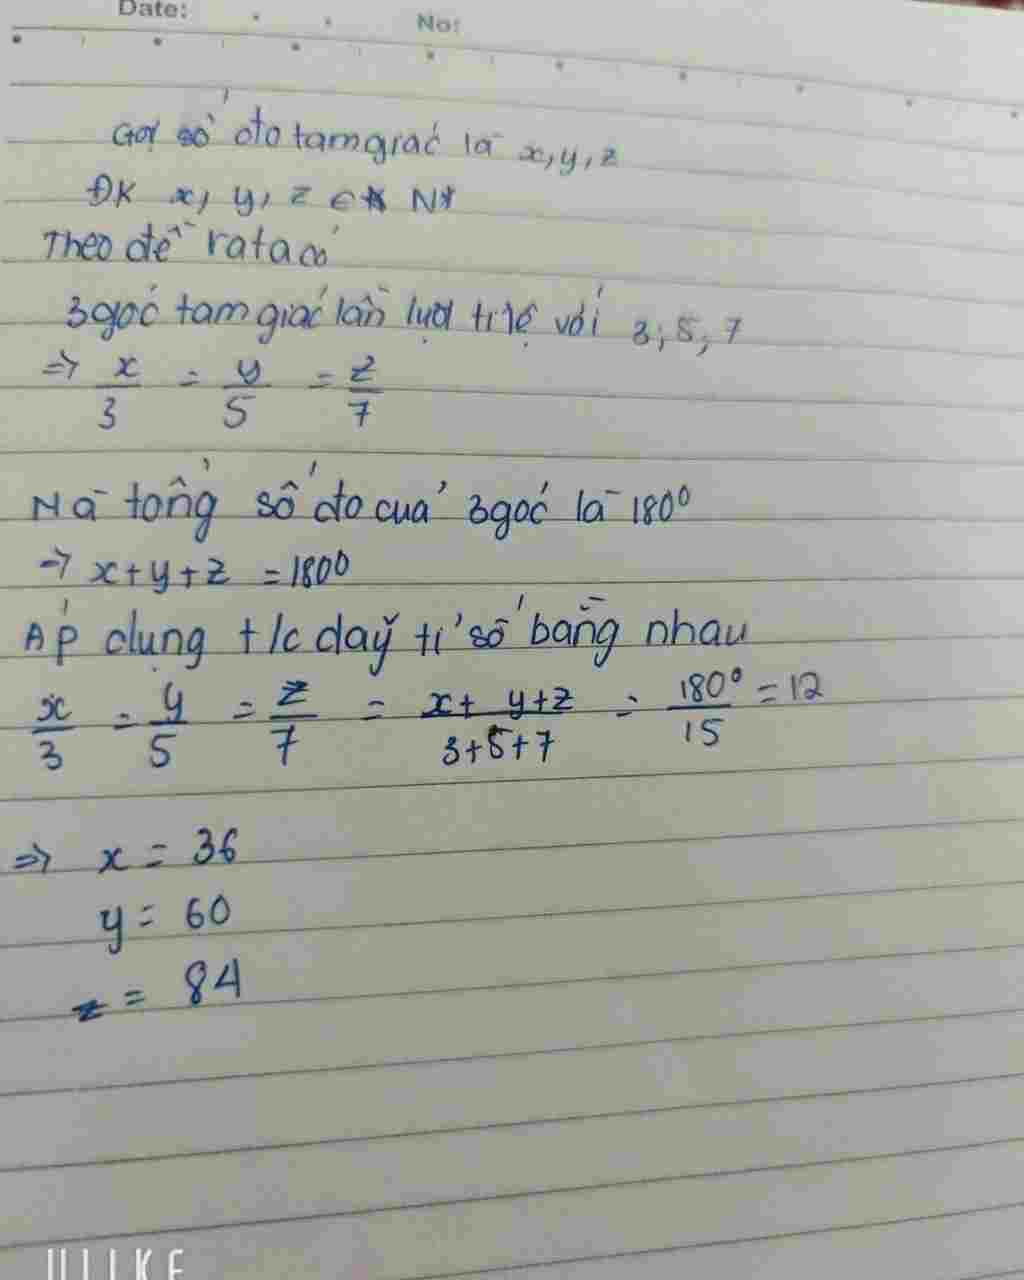 Date:
No:
Gọi số đo tam giác là x, y, z
ĐK x, y, z ∈ N*
Theo đề ra ta có
3 góc tam giác lần lượt tỉ lệ với 3, 5, 7
=> x/3 = y/5 = z/7
Mà tổng số đo của 3 góc là 180°
=> x+y+z = 180°
Áp dụng t/c dãy tỉ số bằng nhau
x/3 = y/5 = z/7 = x+y+z/3+5+7 = 180°/15 = 12
=> x = 36
y = 60
z = 84
ULIKE